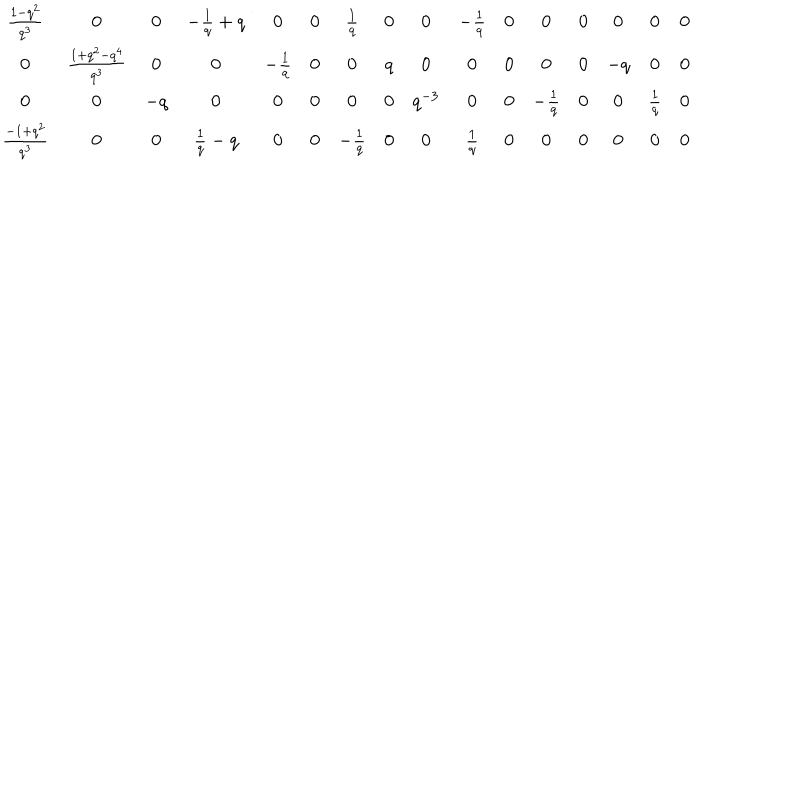 \frac{1-q^2}{q^3} 0 0 -\frac{1}{q}+q 0 0 \frac{1}{q} 0 0 -\frac{1}{q} 0 0 0 0 0 0
0 \frac{1+q^2-q^4}{q^3} 0 0 -\frac{1}{q} 0 0 q 0 0 0 0 0 -q 0 0
0 0 -q 0 0 0 0 0 q^{-3} 0 0 -\frac{1}{q} 0 0 \frac{1}{q} 0
\frac{-1+q^2}{q^3} 0 0 \frac{1}{q}-q 0 0 -\frac{1}{q} 0 0 \frac{1}{q} 0 0 0 0 0 0